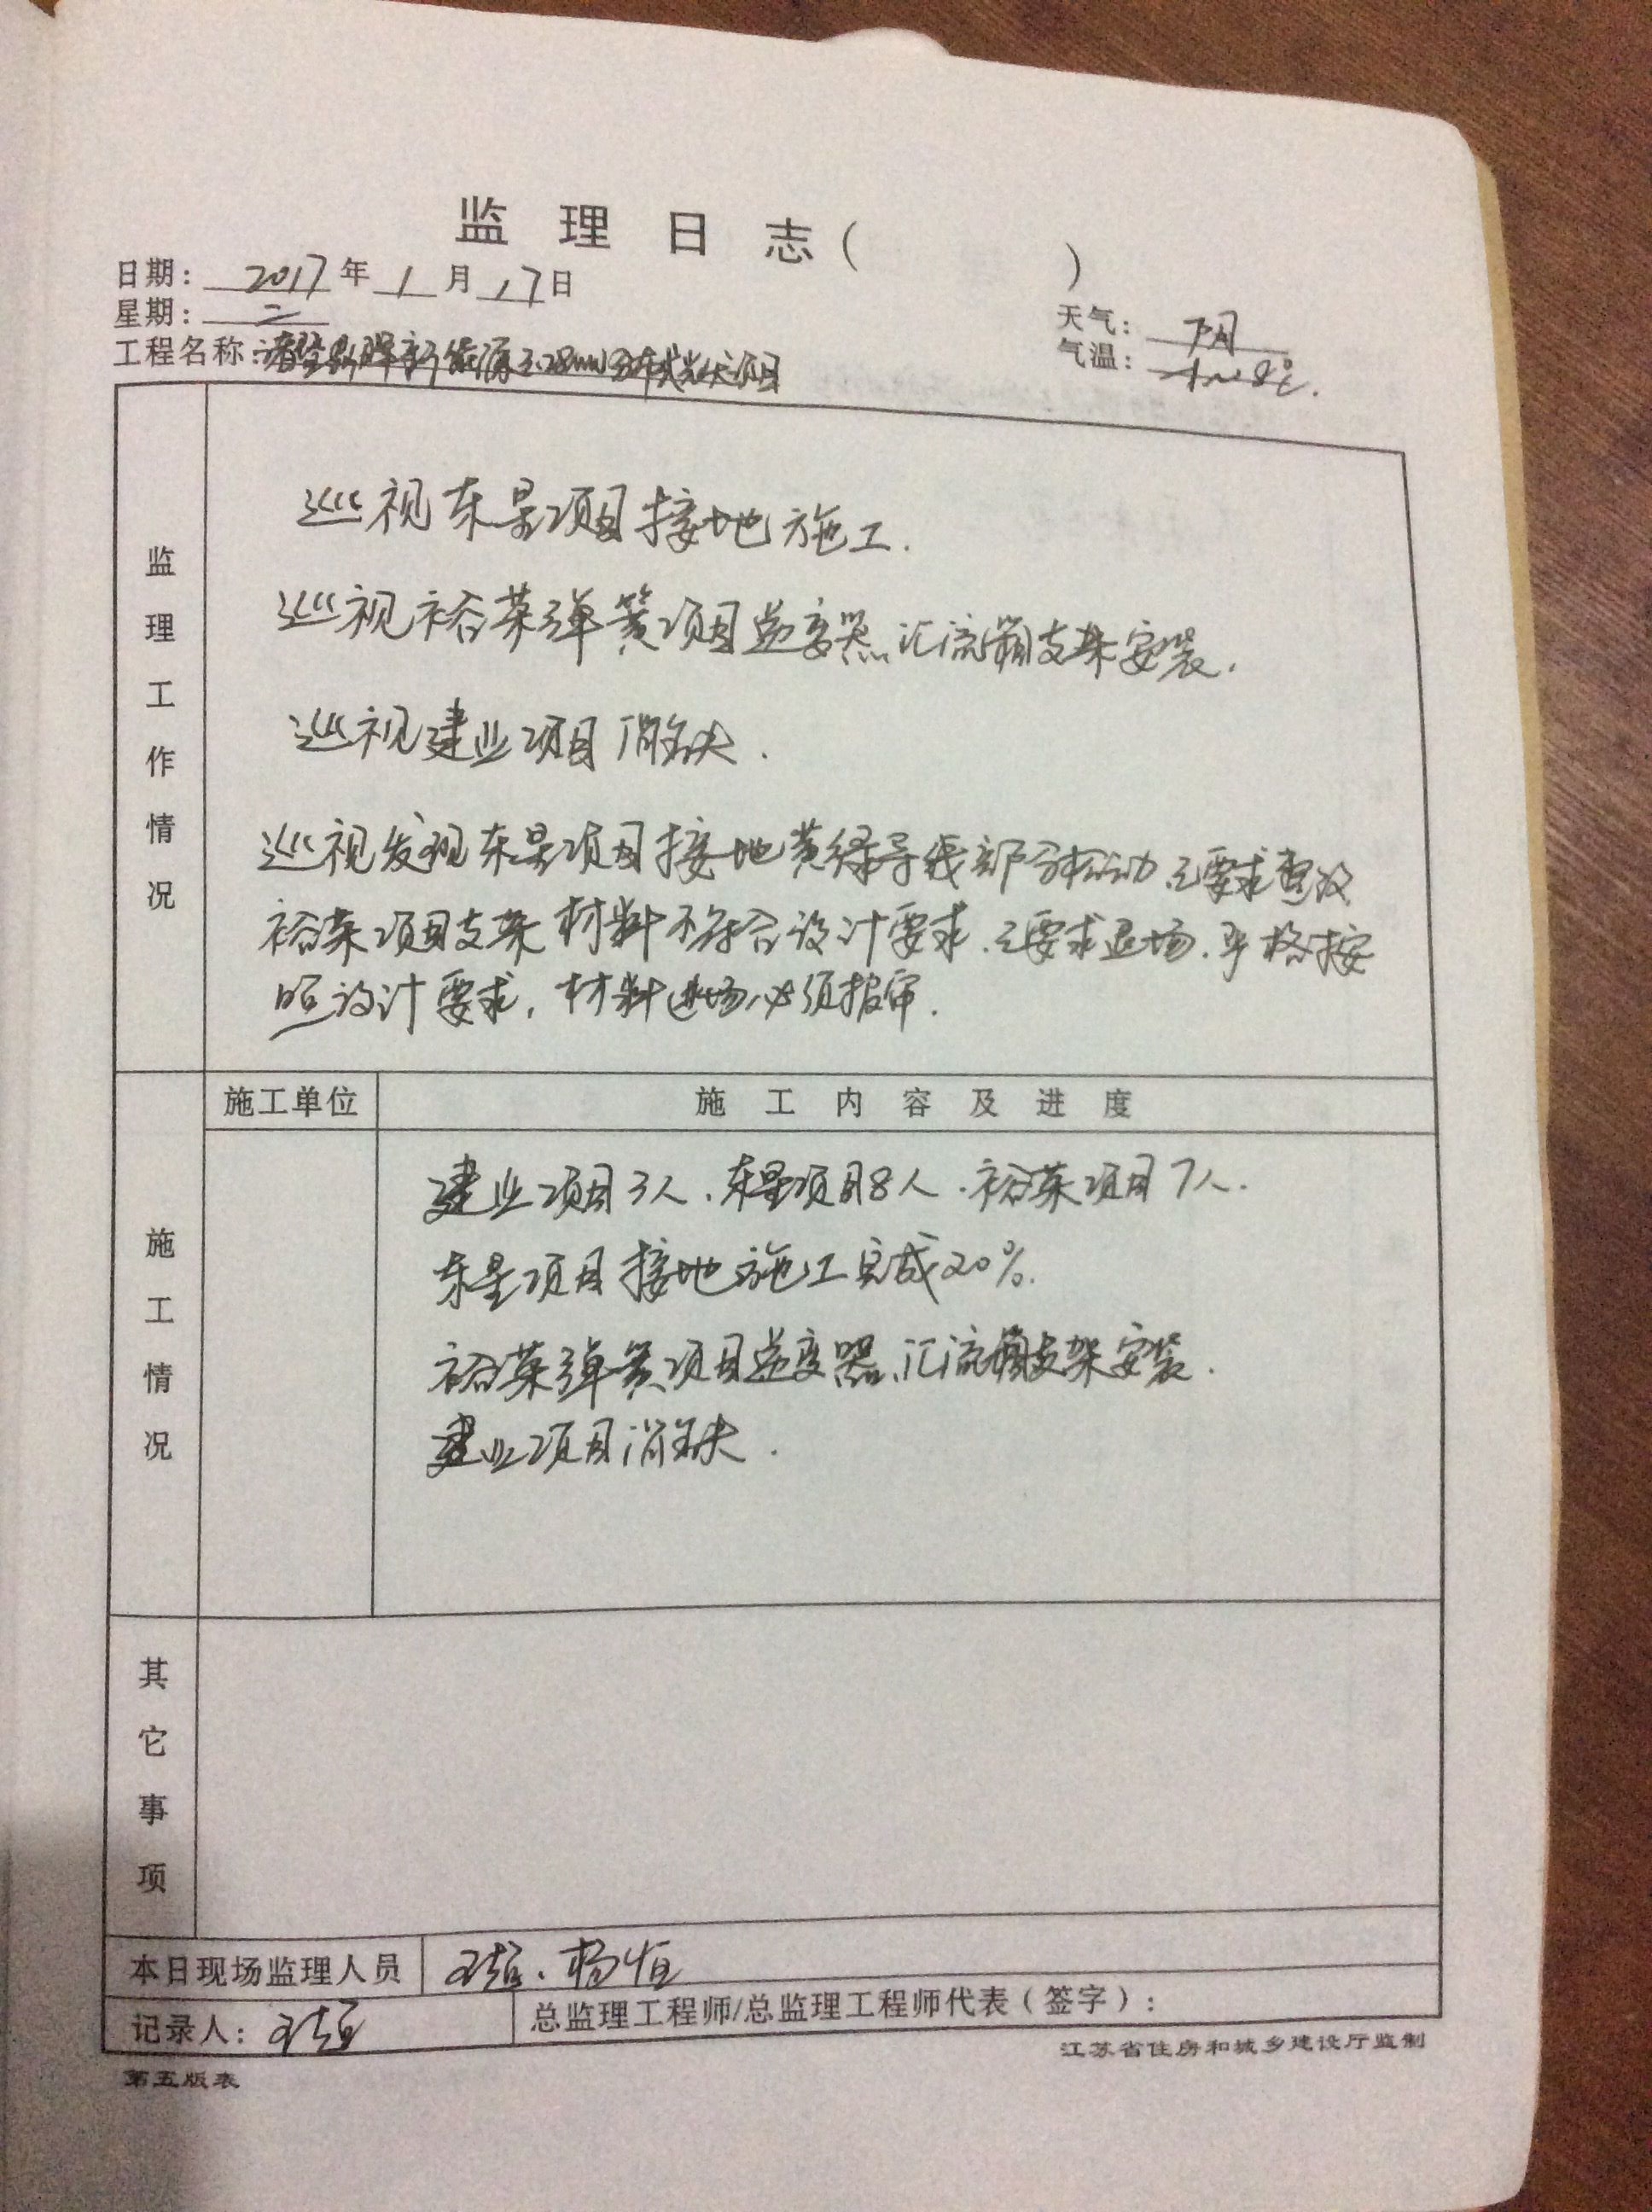 监理日志（ ）
日期：2017年1月17日
星期：二
天气：阴
气温：4~8℃.
工程名称：诸暨 新能源 分布式光伏项目
监理工作情况
巡视东星项目接地施工.
巡视裕荣弹簧项目逆变器、汇流箱支架安装.
巡视建业项目消缺.
巡视发现东星项目接地黄绿导线部分松动、已要求整改
裕荣项目支架材料不符合设计要求、已要求退场.严格按
照设计要求,材料进场必须报审.
施工单位 施工内容及进度
施工情况
建业项目3人、东星项目8人.裕荣项目7人.
东星项目接地施工完成20%.
裕荣弹簧项目逆变器、汇流箱支架安装.
建业项目消缺.
其它事项
本日现场监理人员 王超、杨恒
记录人：王超 总监理工程师/总监理工程师代表（签字）：
江苏省住房和城乡建设厅监制
第五版表